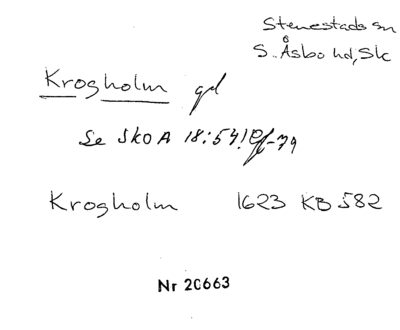 Stenestads sn
S. Åsbo hd, Sk
Krogholm gd
Se SkOA 18:54! Ef-79
Krogholm 1623 KB 582
Nr 20663